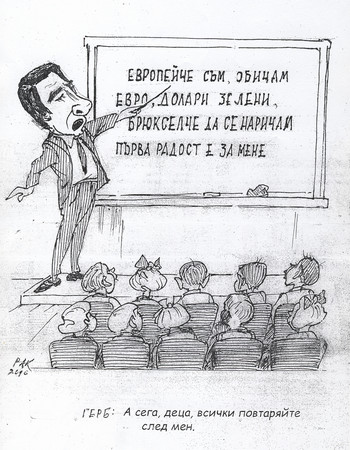 ЕВРОПЕЙЧЕ СЪМ, ОБИЧАМ
ЕВРО, ДОЛАРИ ЗЕЛЕНИ,
БРЮКСЕЛЧЕ ДА СЕ НАРИЧАМ
ПЪРВА РАДОСТ Е ЗА МЕНЕ
РАК
ГЕРБ: А сега, деца, всички повтаряйте
след мен.